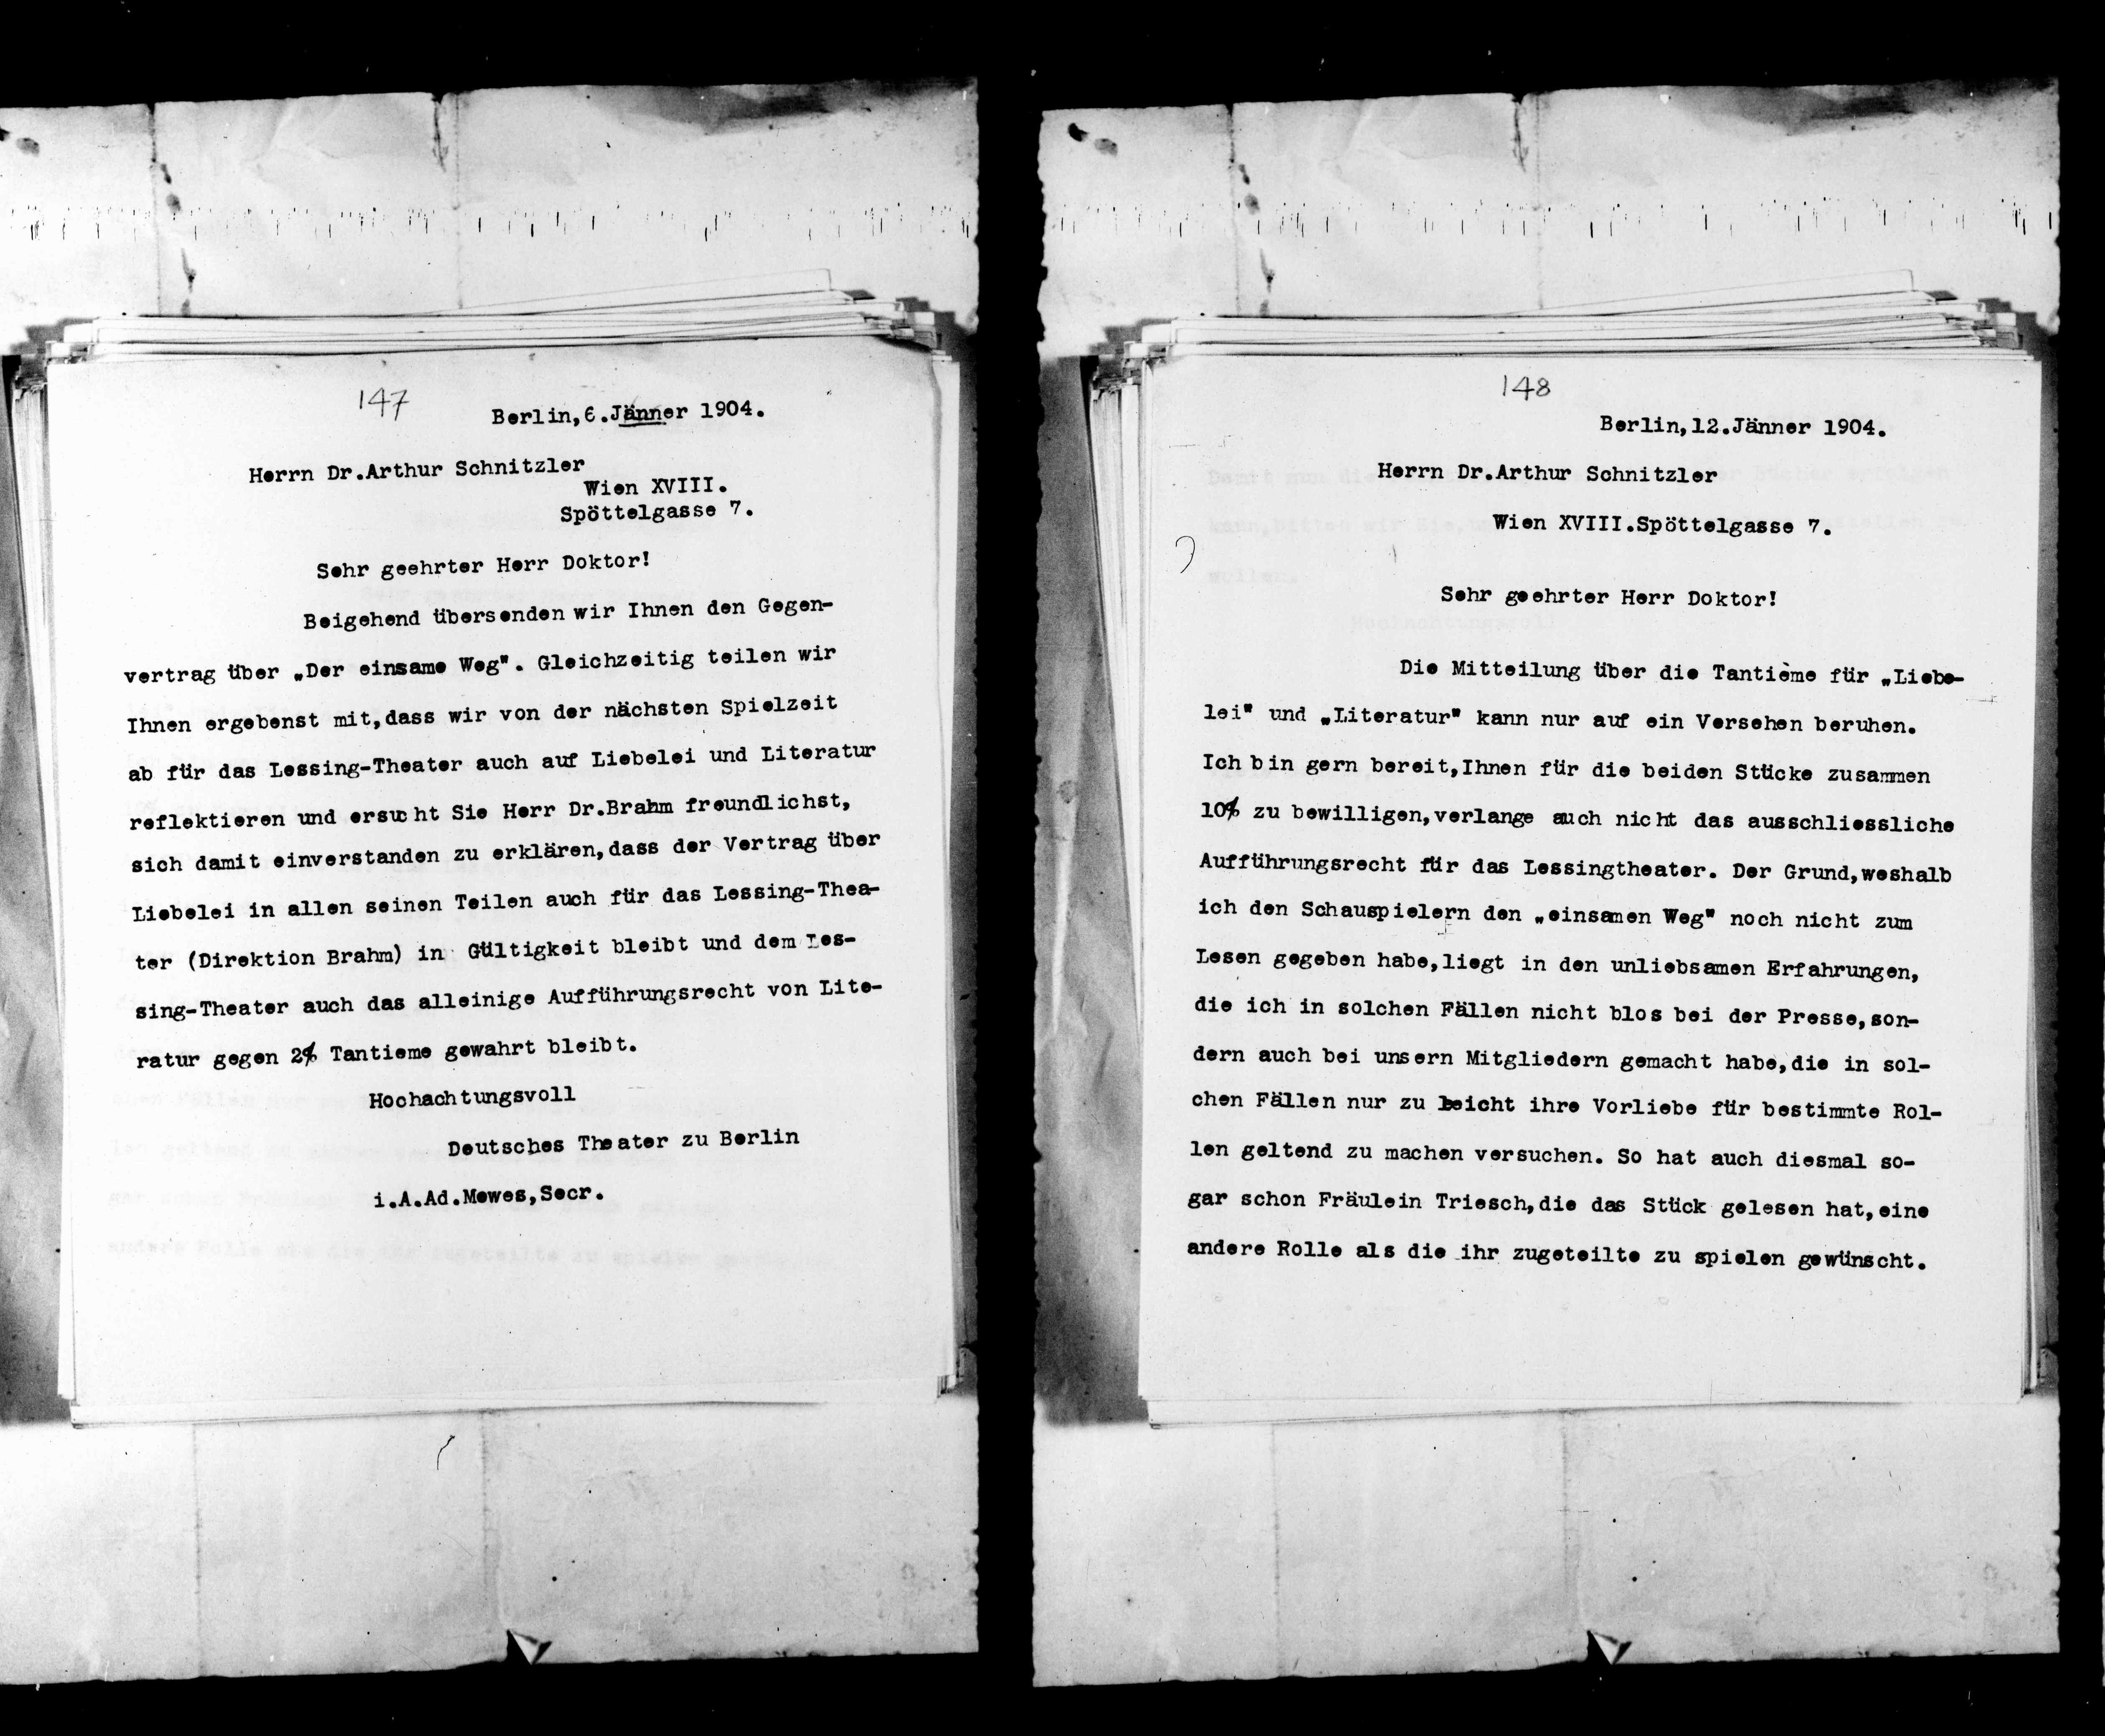 147
Berlin,6.Jänner 1904.
Herrn Dr.Arthur Schnitzler
Wien XVIII.
Spöttelgasse 7.
Sehr geehrter Herr Doktor!
Beigehend übersenden wir Ihnen den Gegen-
vertrag über „Der einsame Weg". Gleichzeitig teilen wir
Ihnen ergebenst mit,dass wir von der nächsten Spielzeit
ab für das Lessing-Theater auch auf Liebelei und Literatur
reflektieren und ersucht Sie Herr Dr.Brahm freundlichst,
sich damit einverstanden zu erklären,dass der Vertrag über
Liebelei in allen seinen Teilen auch für das Lessing-Thea-
ter (Direktion Brahm) in Gültigkeit bleibt und dem Les-
sing-Theater auch das alleinige Aufführungsrecht von Lite-
ratur gegen 2% Tantieme gewahrt bleibt.
Hochachtungsvoll
Deutsches Theater zu Berlin
i.A.Ad.Mewes,Secr.
148
Berlin,12.Jänner 1904.
Herrn Dr.Arthur Schnitzler
Wien XVIII.Spöttelgasse 7.
Sehr geehrter Herr Doktor!
Die Mitteilung über die Tantième für „Liebe-
lei" und „Literatur" kann nur auf ein Versehen beruhen.
Ich bin gern bereit,Ihnen für die beiden Stücke zusammen
10% zu bewilligen,verlange auch nicht das ausschliessliche
Aufführungsrecht für das Lessingtheater. Der Grund,weshalb
ich den Schauspielern den „einsamen Weg" noch nicht zum
Lesen gegeben habe,liegt in den unliebsamen Erfahrungen,
die ich in solchen Fällen nicht blos bei der Presse,son-
dern auch bei unsern Mitgliedern gemacht habe,die in sol-
chen Fällen nur zu leicht ihre Vorliebe für bestimmte Rol-
len geltend zu machen versuchen. So hat auch diesmal so-
gar schon Fräulein Triesch,die das Stück gelesen hat,eine
andere Rolle als die ihr zugeteilte zu spielen gewünscht.